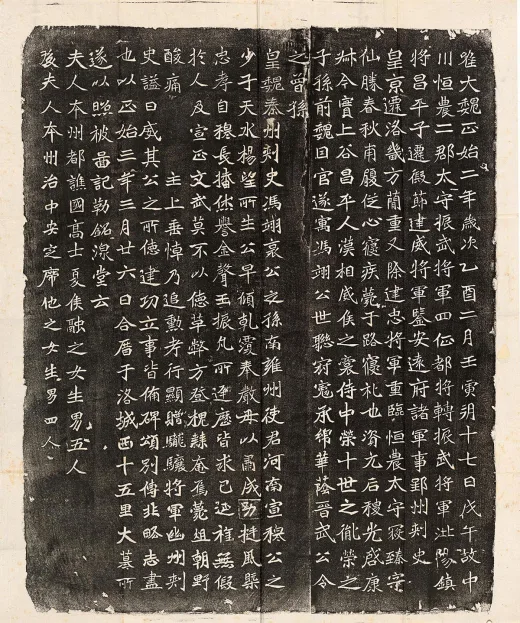 唯大魏正始二年歲次乙酉二月壬寅朔十七日戊午故中
川恒農二郡太守振武將軍四征都將轉振武將軍沘陽鎮
將昌平子遷假節建威將軍鑒安遠府諸軍事郢州刺史
皇京遷洛畿方蘭重又除建忠將軍重臨恒農太守寢臻守
仙勝春秋甫履從心寢疾薨于路寢礼也浴元后稷光啓康
叔今實上谷昌平人漢相威侯之裔侍中榮十世之胤榮之
子孫前魏因官遂寓馮翊公世聯府寃承綿華蔭晉武公令
之曾孫
皇魏秦州刾史馮翊哀公之孫南雍州使君河南宣穆公之
少子天水楊望所生公早傾乾覆奉嚴母以肅成勁挺風槩
忠孝自穆長播休譽金聲玉振凡所逕歷皆求己延稚無假
於人及宣正文武莫不以德草弊方登槐棘奄焉薨俎朝野
酸痛 主上垂悼乃追勳考行顯贈驤將軍幽州刾
史諡曰威其公之所德建功立事皆備碑頌別傳非略志盡
也以正始三年三月廿六日合厝于洛城西十五里大墓所
遂以照被圖記勒銘湶堂云
夫人本州都譙國高士夏侯融之女生男五人
後夫人本州治中安定席他之女生男四人